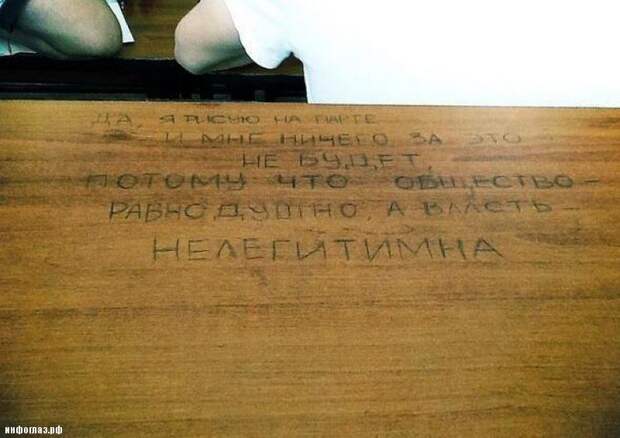 ДА, Я РИСУЮ НА ПАРТЕ
И МНЕ НИЧЕГО ЗА ЭТО
НЕ БУДЕТ,
ПОТОМУ ЧТО ОБЩЕСТВО –
РАВНОДУШНО, А ВЛАСТЬ –
НЕЛЕГИТИМНА
инфоглаз.рф